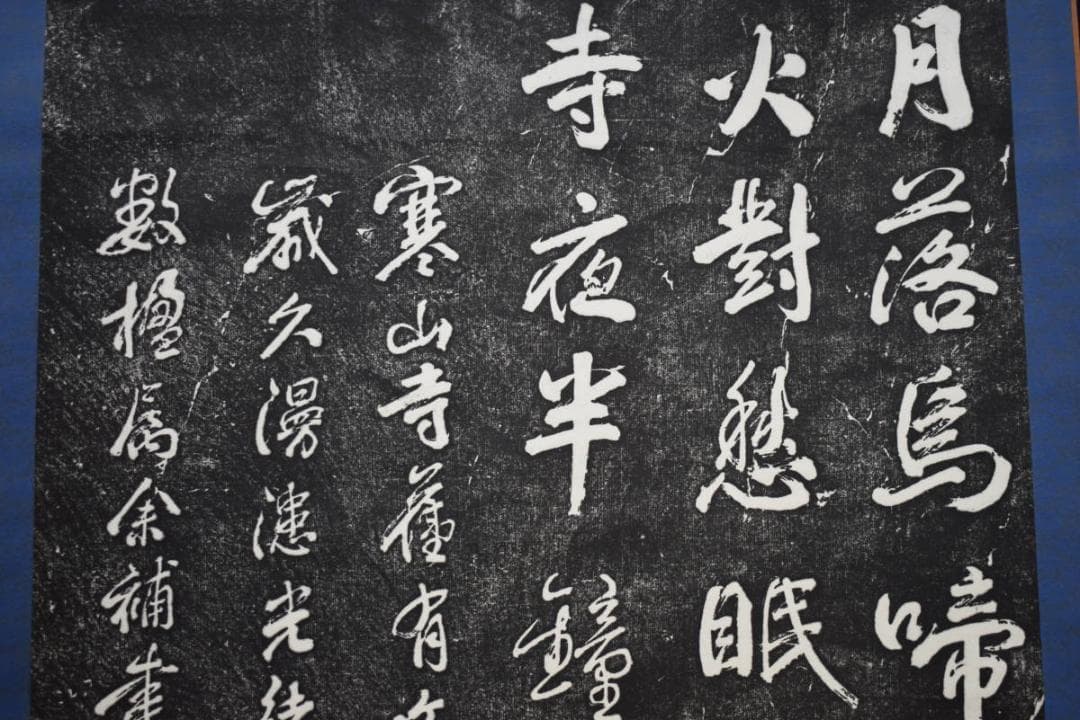 月落烏啼
火對愁眠
寺夜半鐘
寒山寺舊有文
歲久漫漶光緒
數楹屬余補書